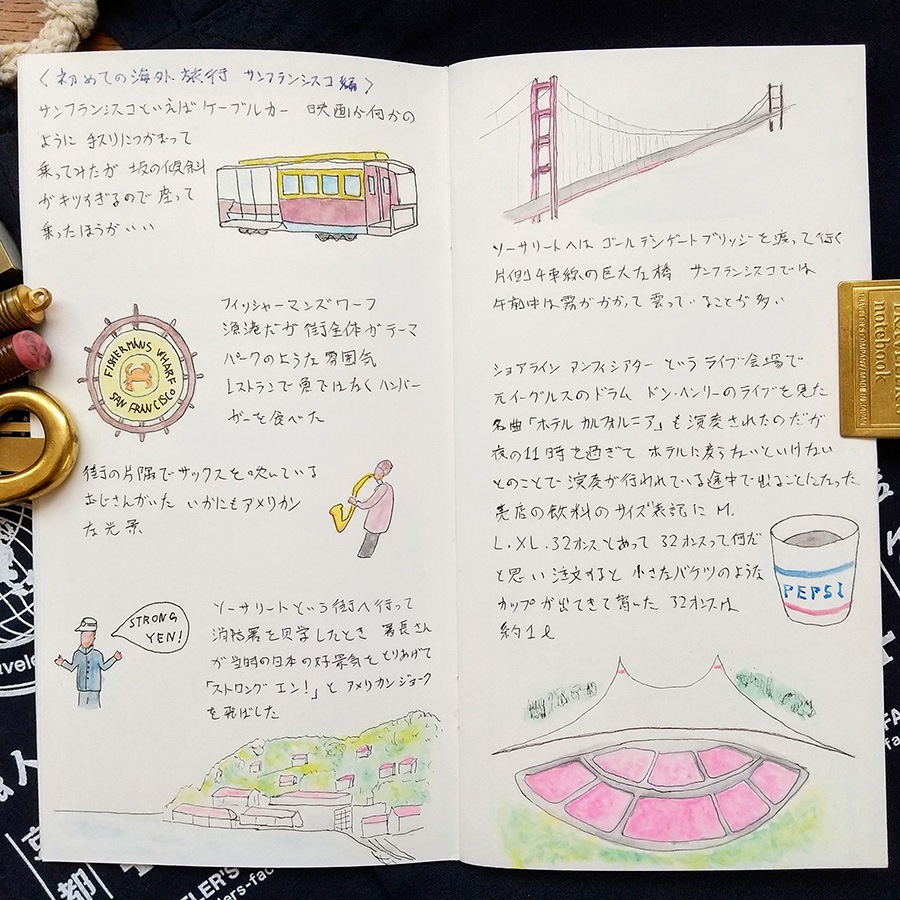 〈初めての海外旅行 サンフランシスコ編〉
サンフランシスコといえばケーブルカー 映画か何かの
ように 手スリにつかまって
乗ってみたが 坂の傾斜
がキツすぎるので座って
乗ったほうがいい
フィッシャーマンズワーフ
漁港だが街全体がテーマ
パークのような雰囲気
レストランで魚ではなくハンバー
ガーを食べた
FISHERMANS WHARF
SAN FRANCISCO
街の片隅でサックスを吹いている
おじさんがいた いかにもアメリカン
な光景
STRONG
YEN!
ソーサリートという街へ行って
消防署を見学したとき 署長さん
が当時の日本の好景気をとりあげて
「ストロング エン!」と アメリカンジョーク
を飛ばした
ソーサリートへは ゴールデンゲートブリッジを渡って行く
片側4車線の巨大な橋 サンフランシスコでは
午前中は霧がかかって曇っていることが多い
ショアライン アンフィシアター という ライブ会場で
元イーグルスのドラム ドン・ヘンリーのライブを見た
名曲「ホテル カルフォルニア」も演奏されたのだが
夜の11時を過ぎて ホテルに戻らないといけない
とのことで 演奏が行われている途中で出ることになった
売店の飲料のサイズ表記に M.
L.XL.32オンスとあって 32オンスって何だ
と思い注文すると 小さなバケツのような
カップが出てきて驚いた 32オンスは
約1ℓ
PEPSI
notebook
TRAVELER'S COMPANY MADE IN JAPAN
京
都